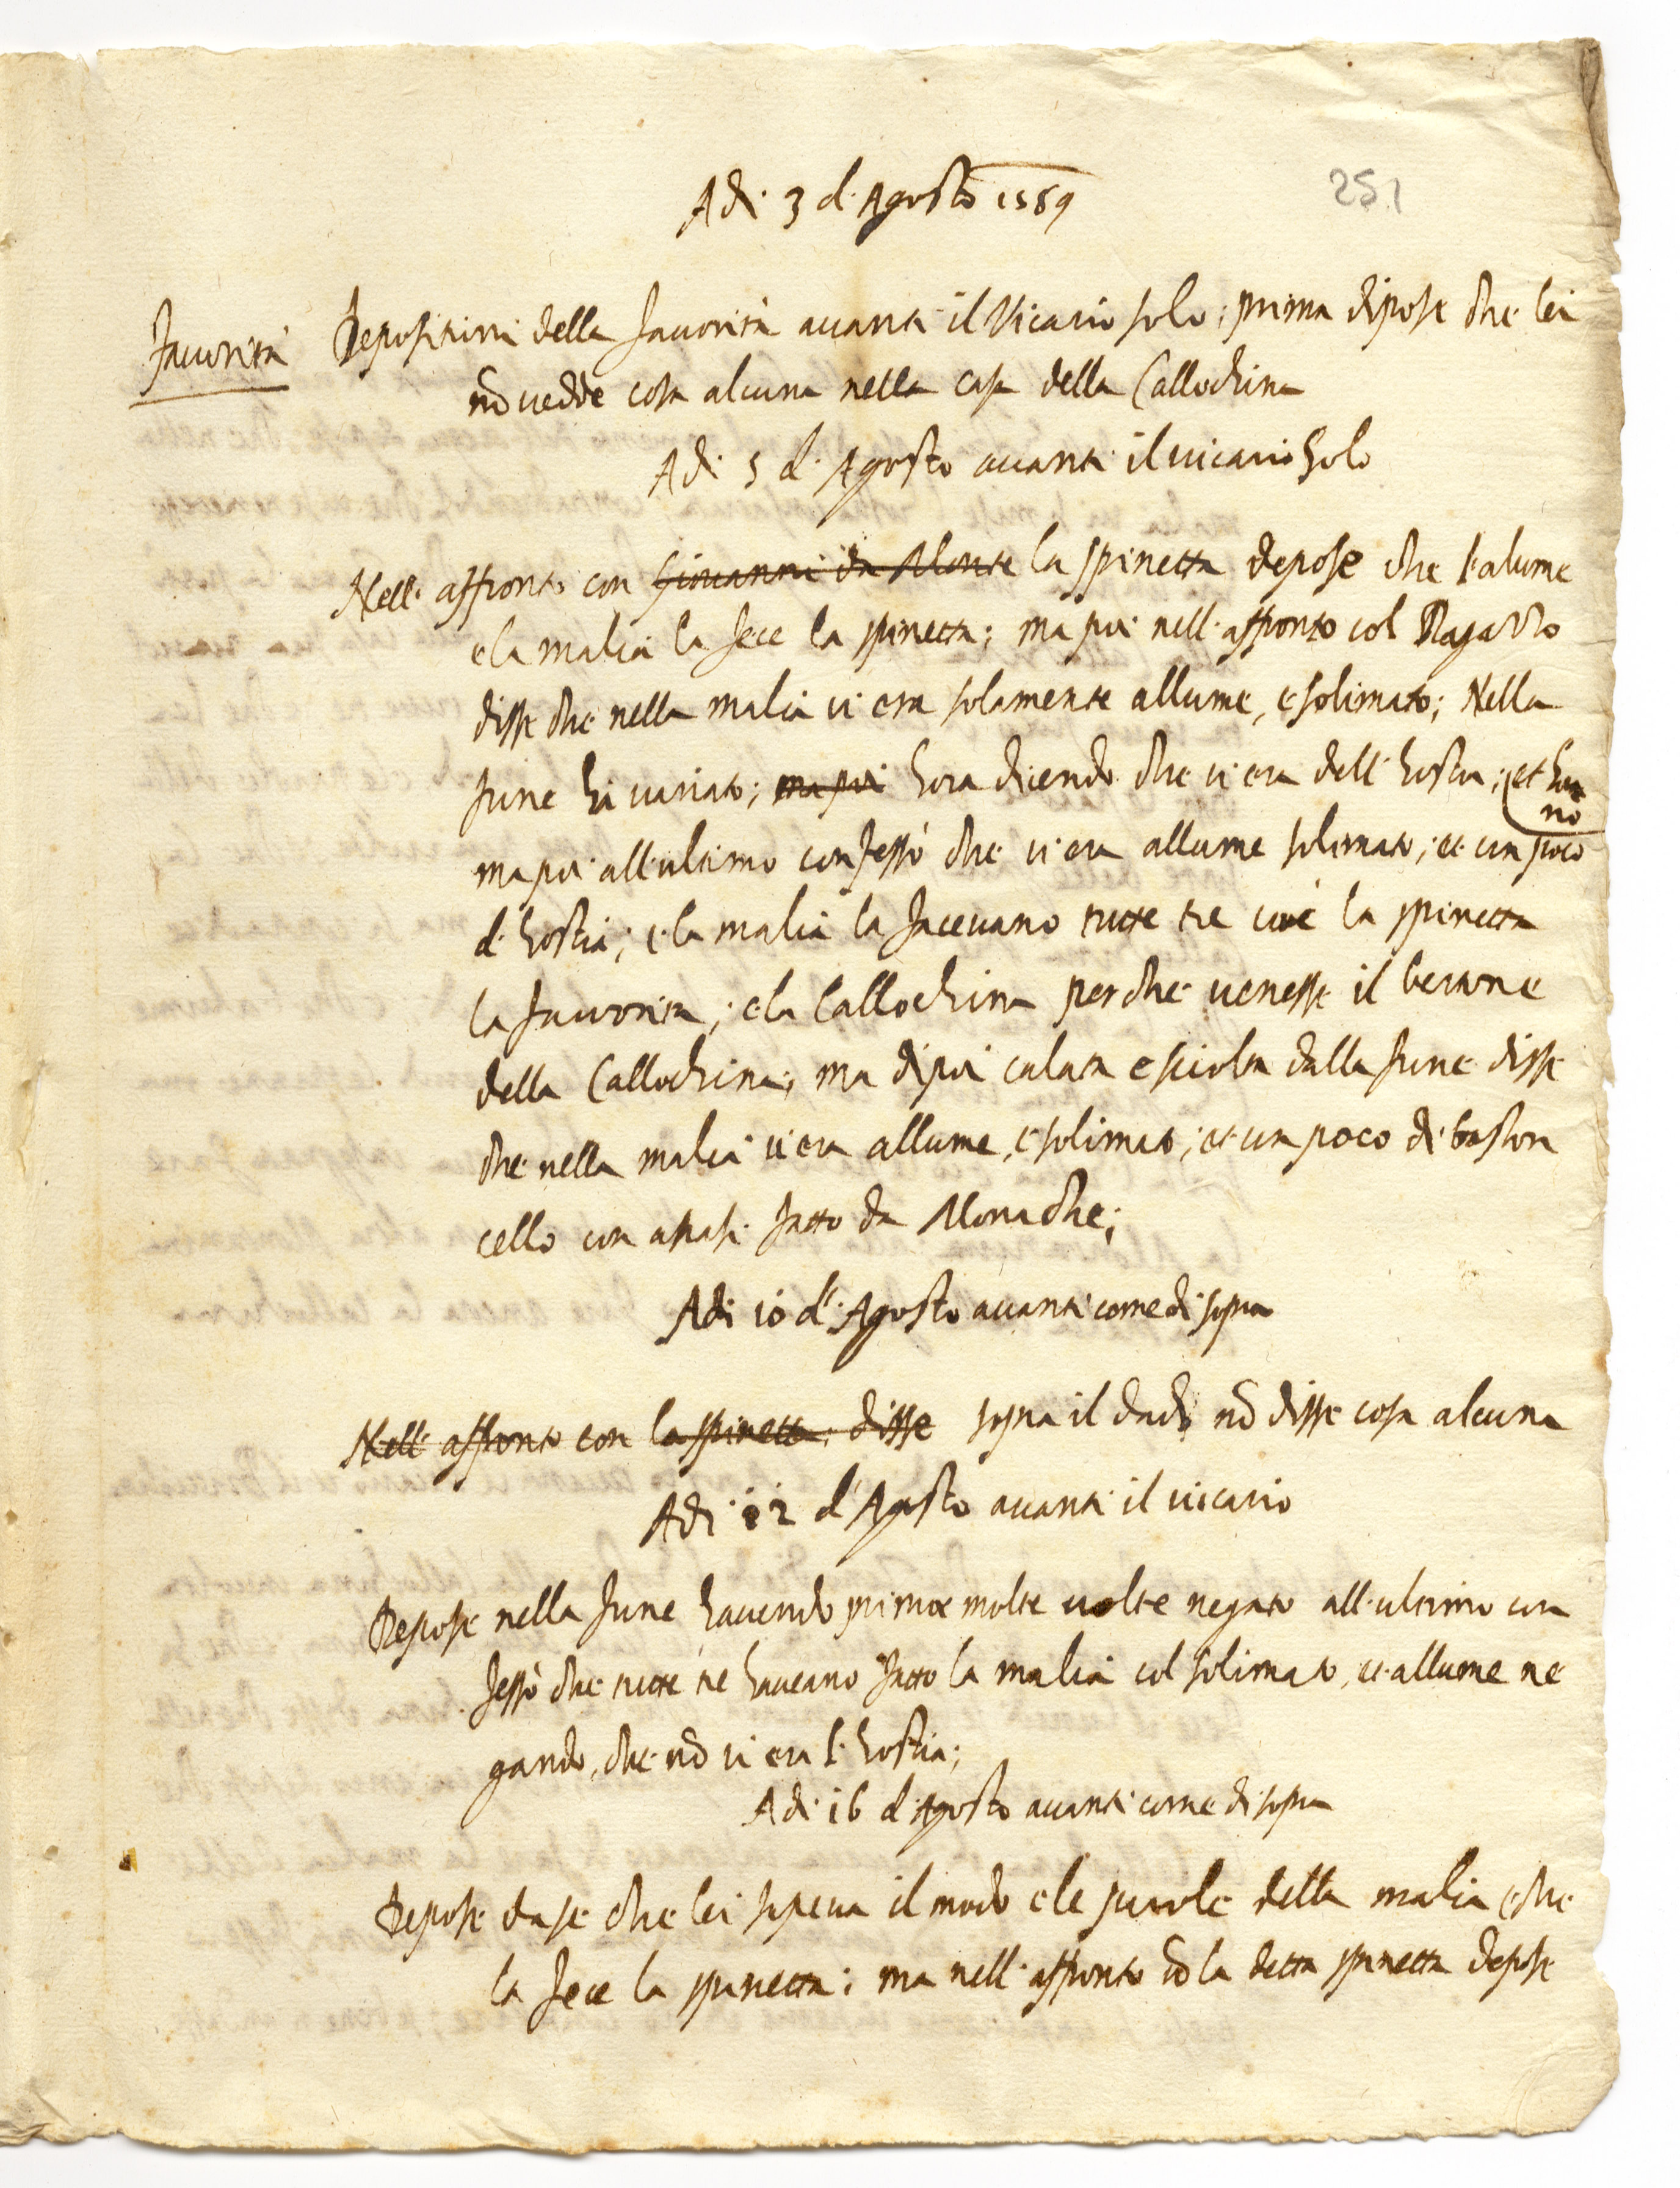 251
Adi 3 d'Agosto 1589
Fauorita
Depositioni della Fauorita auanti il Vicario solo; prima dipose che lei
nō uedde cosa alcuna nella casa della Callochina
Adi 5 d'Agosto auanti il uicario solo
Nell'affronto con Giouanni da Monte la spinetta depose che l'alume
e la malia la fece la spinetta; ma poi nell'affronto col Ragazzo
disse che nella malia ui era solamente allume, e solimato; Nella
fune hà uariato; ma poi hora dicendo che ui era dell'hostia; et hora
nō
ma poi all'ultimo confessò che ui era allume solimato; et un poco
d'hostia; e la malia la faceuano tutte tre cioè la spinetta
la fauorita; e la Callochina perche uenesse il bertone
della Callochina; ma dipoi calata e sciolta dalla fune disse
che nella malia ui era allume, e solimato; et un poco di baston
cello con fatto da Monache;
Adi 10 d'Agosto auanti come di sopra
Nell'affronto con la spinetta; disse sopra il dado nō disse cosa alcuna
Adi 12 d'Agosto auanti il uicario
Depose nella fune hauendo prima molte uolte negato all'ultimo con
fessò che tutte tre haueano fatto la malia col solimato, et allume ne
gando, che nō ui era l'hostia;
Adi 16 d'Agosto auanti come di sopra
Depose da se che lei sapeua il modo e le parole della malia e che
la fece la spinetta; ma nell'affronto cō la detta spinetta depose